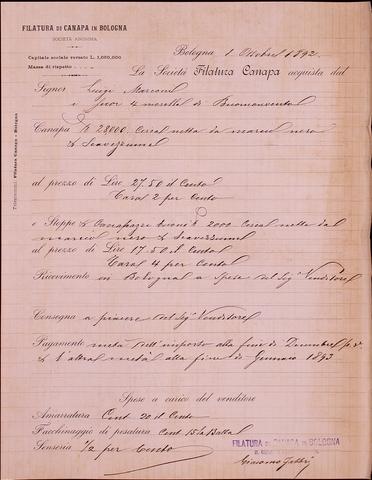 FILATURA DI CANAPA IN BOLOGNA
SOCIETÀ ANONIMA
Capitale sociale versato L. 1,080,000
Massa di rispetto
Bologna 1 Ottobre 1892
La Società Filatura Canapa acquista dal
Signor Luigi Marconi
di Buonconvento
Canapa K 28000. Cereal netta da marcie nero
& Scavezzume
al prezzo di Lire 27.50 il Cento
Tara 2 per Cento
e Stoppe & Canapazzi buoni K 2000 Cereal netta dal
marcie nero & Scavezzume
al prezzo di Lire 17.50 il Cento
Tara 4 per Cento
Ricevimento in Bologna a Spese del Sig Venditore
Consegna a piacere del Sig Venditore
Pagamento metà dell'importo alla fine di Dicembre p.v.
& l'altra metà alla fine di Gennaio 1893
Spese a carico del venditore
Amarratura Cent. 20 il Cento
Facchinaggio di pesatura Cent 15 la Balla
Senseria 1/2 per Cento
FILATURA DI CANAPA IN BOLOGNA
Giacomo
Telegrammi: Filatura Canapa - Bologna